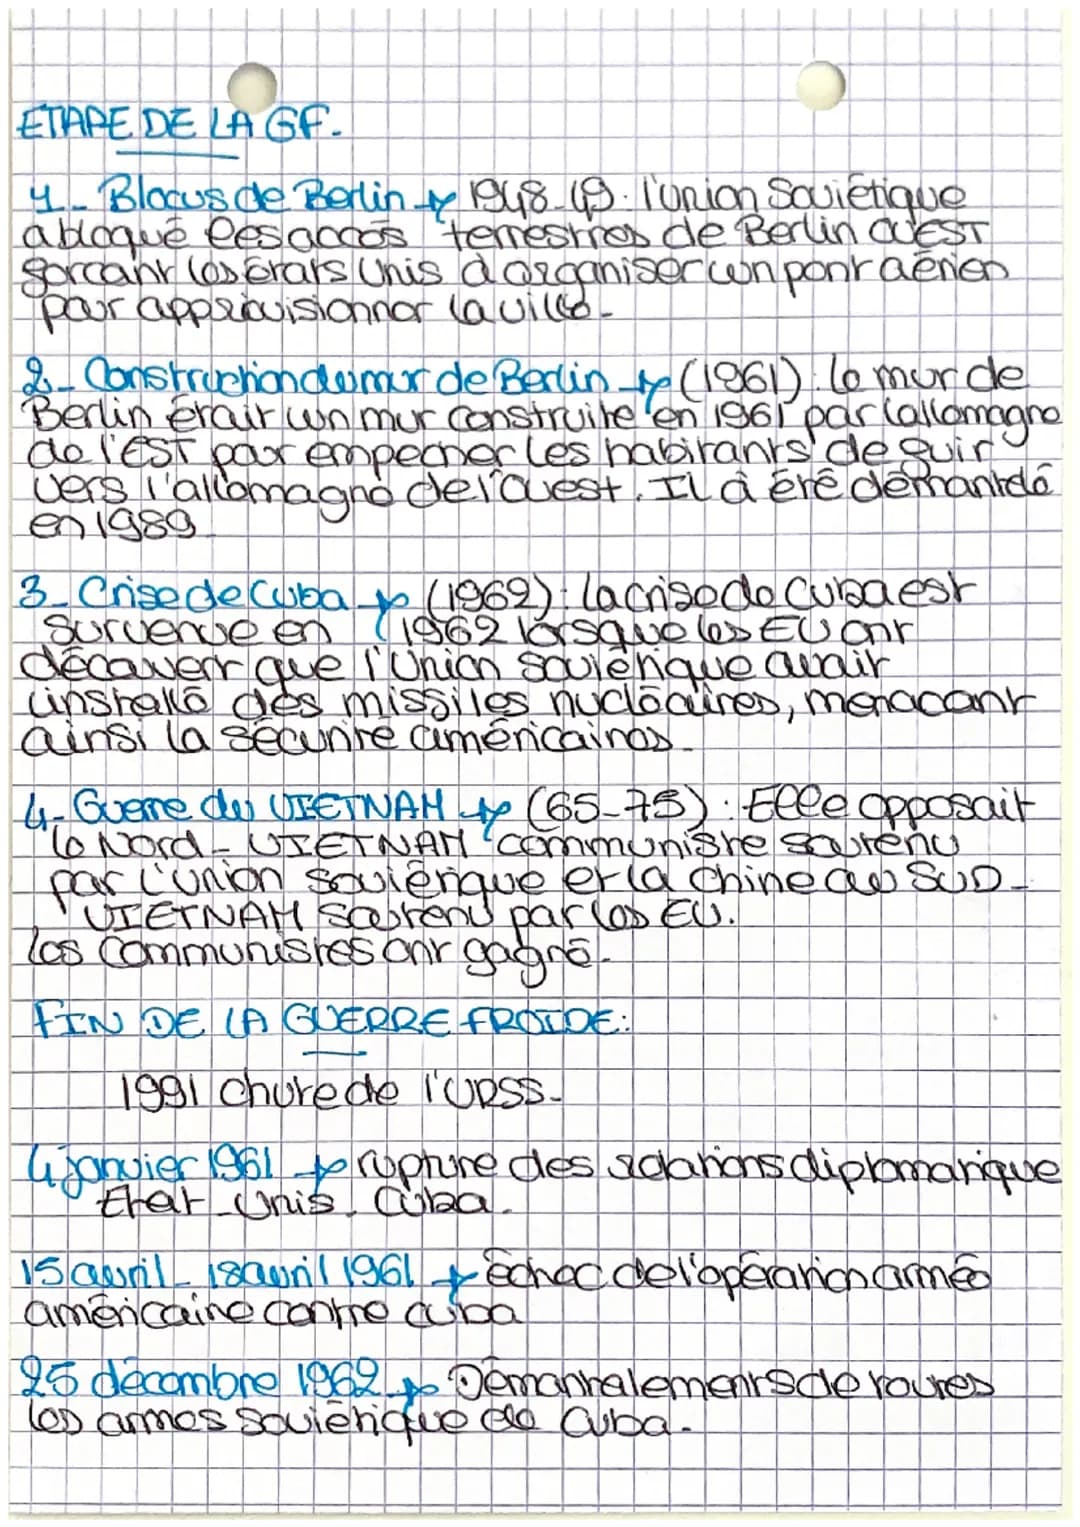 ETAPE DE LA GF.
1- Blocus de Berlin → 1948-49 : l'union Soviétique
a bloqué les accès terrestres de Berlin OUEST
forcant les états Unis d'organiser un pont aérien
pour approvisionner la ville.
2- Construction du mur de Berlin → (1961) : le mur de
Berlin était un mur construite en 1961 par l'allemagne
de l'EST par empecher les habitants de fuir
vers l'allemagne de l'ouest. Il à été démantelé
en 1989
3- Crise de Cuba → (1962) : la crise de Cuba est
survenue en 1962 lorsque les EU ont
découvert que l'Union soviétique avait
installé des missiles nucléaires, menacant
ainsi la sécurité américaines.
4- Guerre du VIETNAM → (65-75) : Elle opposait
le Nord-VIETNAM communiste soutenu
par l'union soviétique et la chine au SUD-
VIETNAM soutenu par les EU.
les communistes ont gagné.
FIN DE LA GUERRE FROIDE:
1991 chute de l'URSS.
4 janvier 1961 → rupture des relations diplomatique
Etat-Unis. Cuba.
15 avril - 18 avril 1961 → échec de l'opération armée
américaine contre cuba
25 décembre 1962 → Démantelements de toutes
les armes soviétique de Cuba.